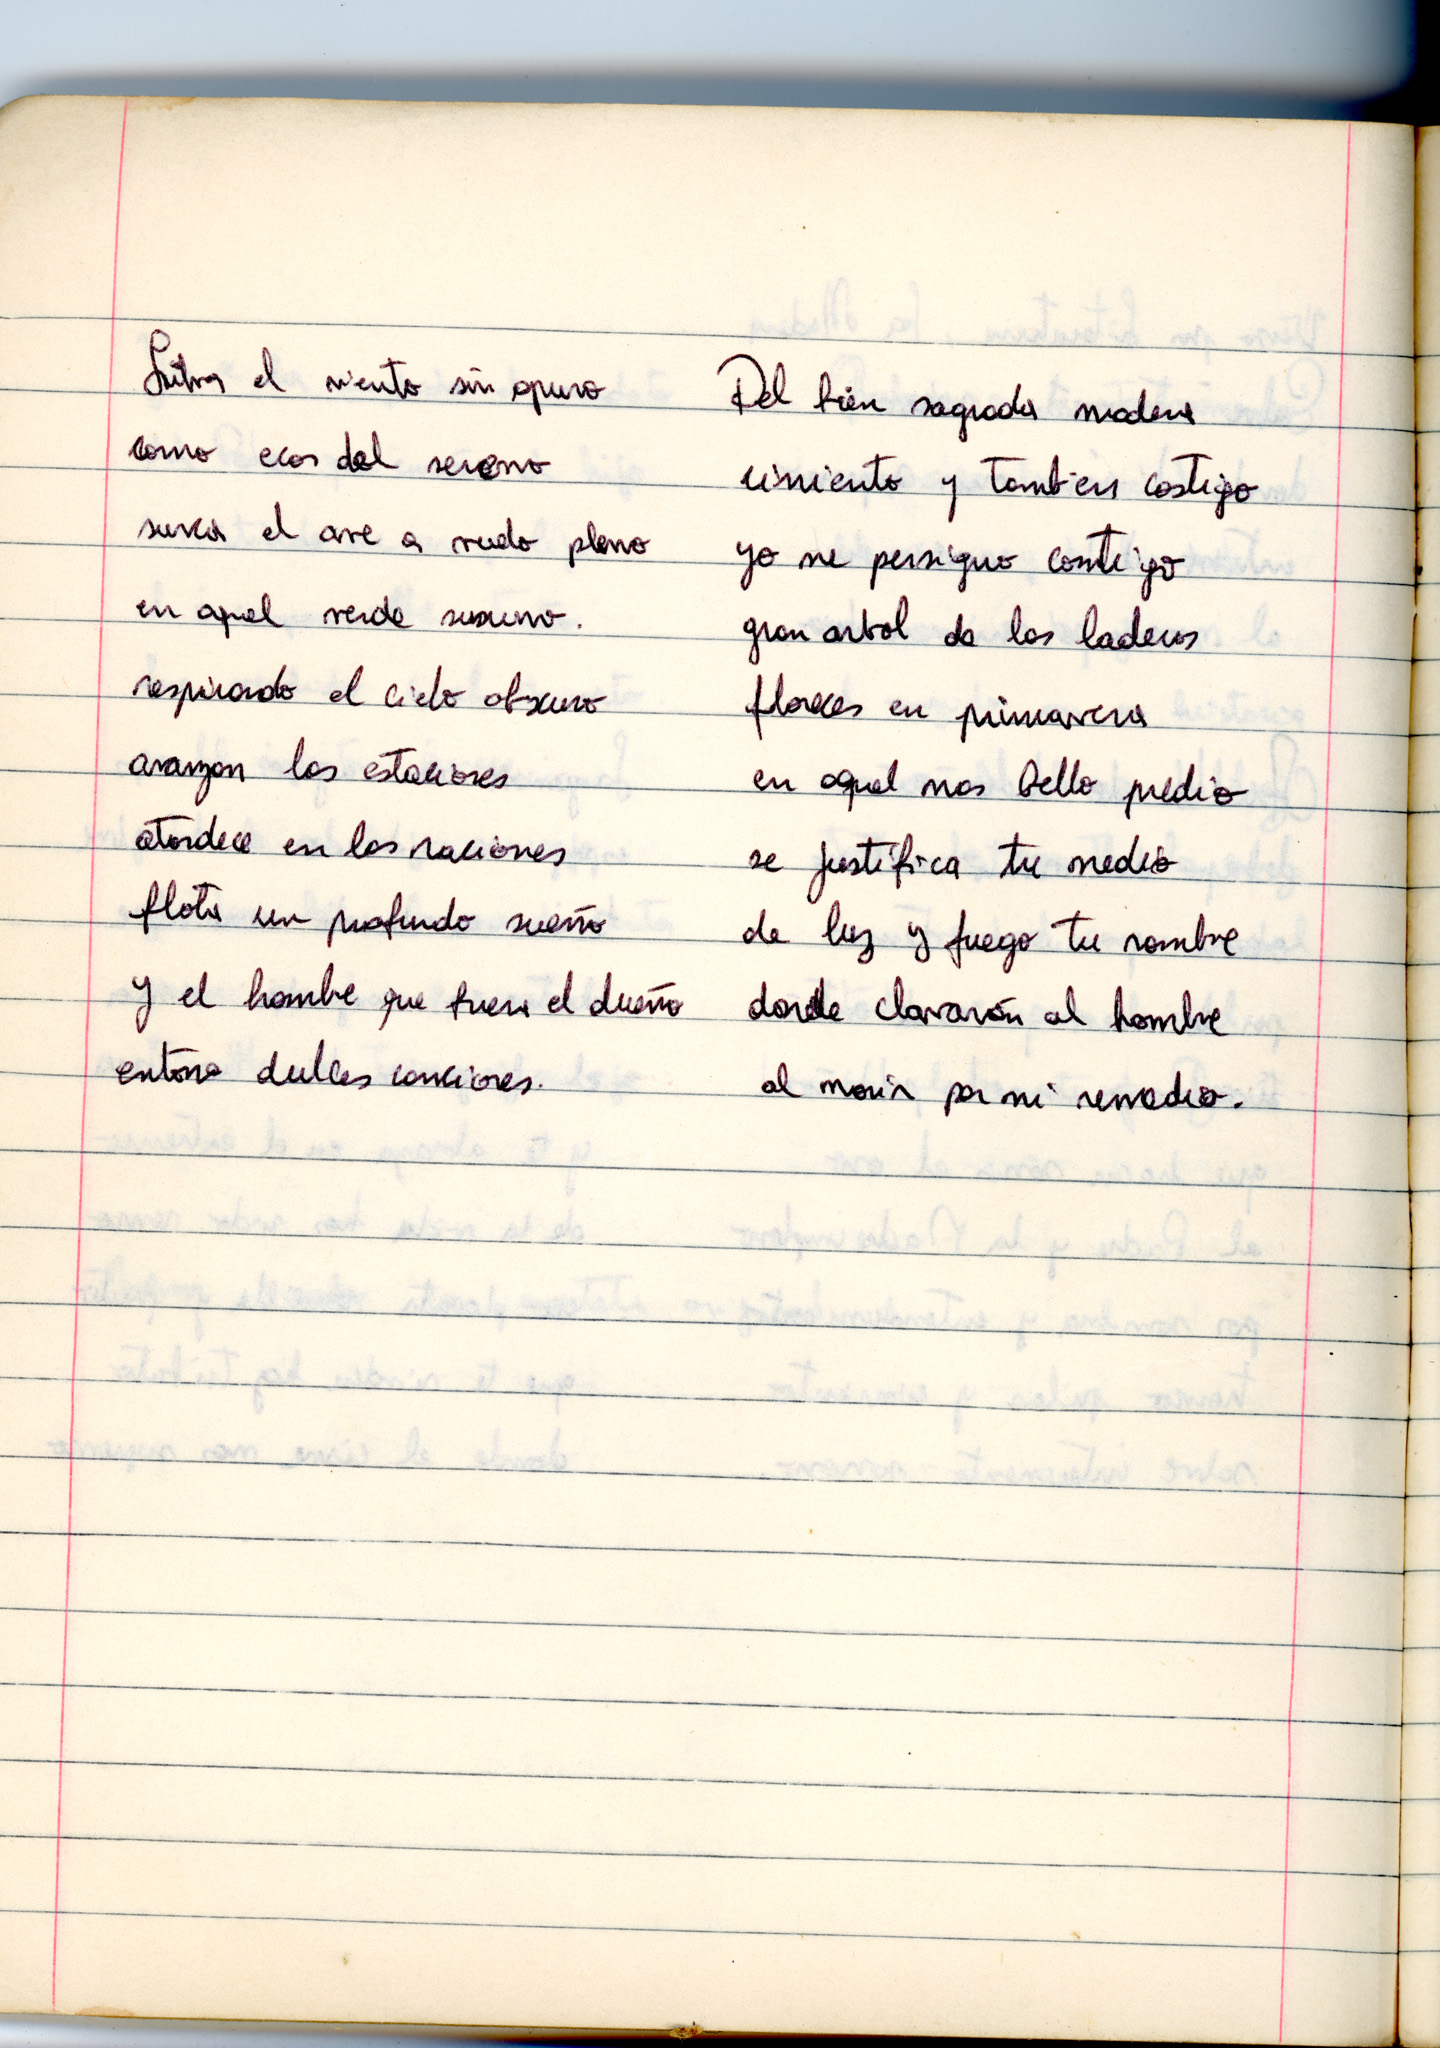 Silva el viento sin apuro
como ecos del sereno
surca el ave a vuelo pleno
en aquel verde susurro.
respirando el cielo obscuro
avanzan las estaciones
atardece en las naciones
flota un profundo sueño
y el hombre que fuera el dueño
entona dulces canciones.
Del bien sagrada madera
cimiento y tambien castigo
yo me persiguo contigo
gran arbol de las laderas
floreces en primavera
en aquel mas bello predio
se justifica tu medio
de luz y fuego tu nombre
donde clavarón al hombre
al morir por mi remedio.